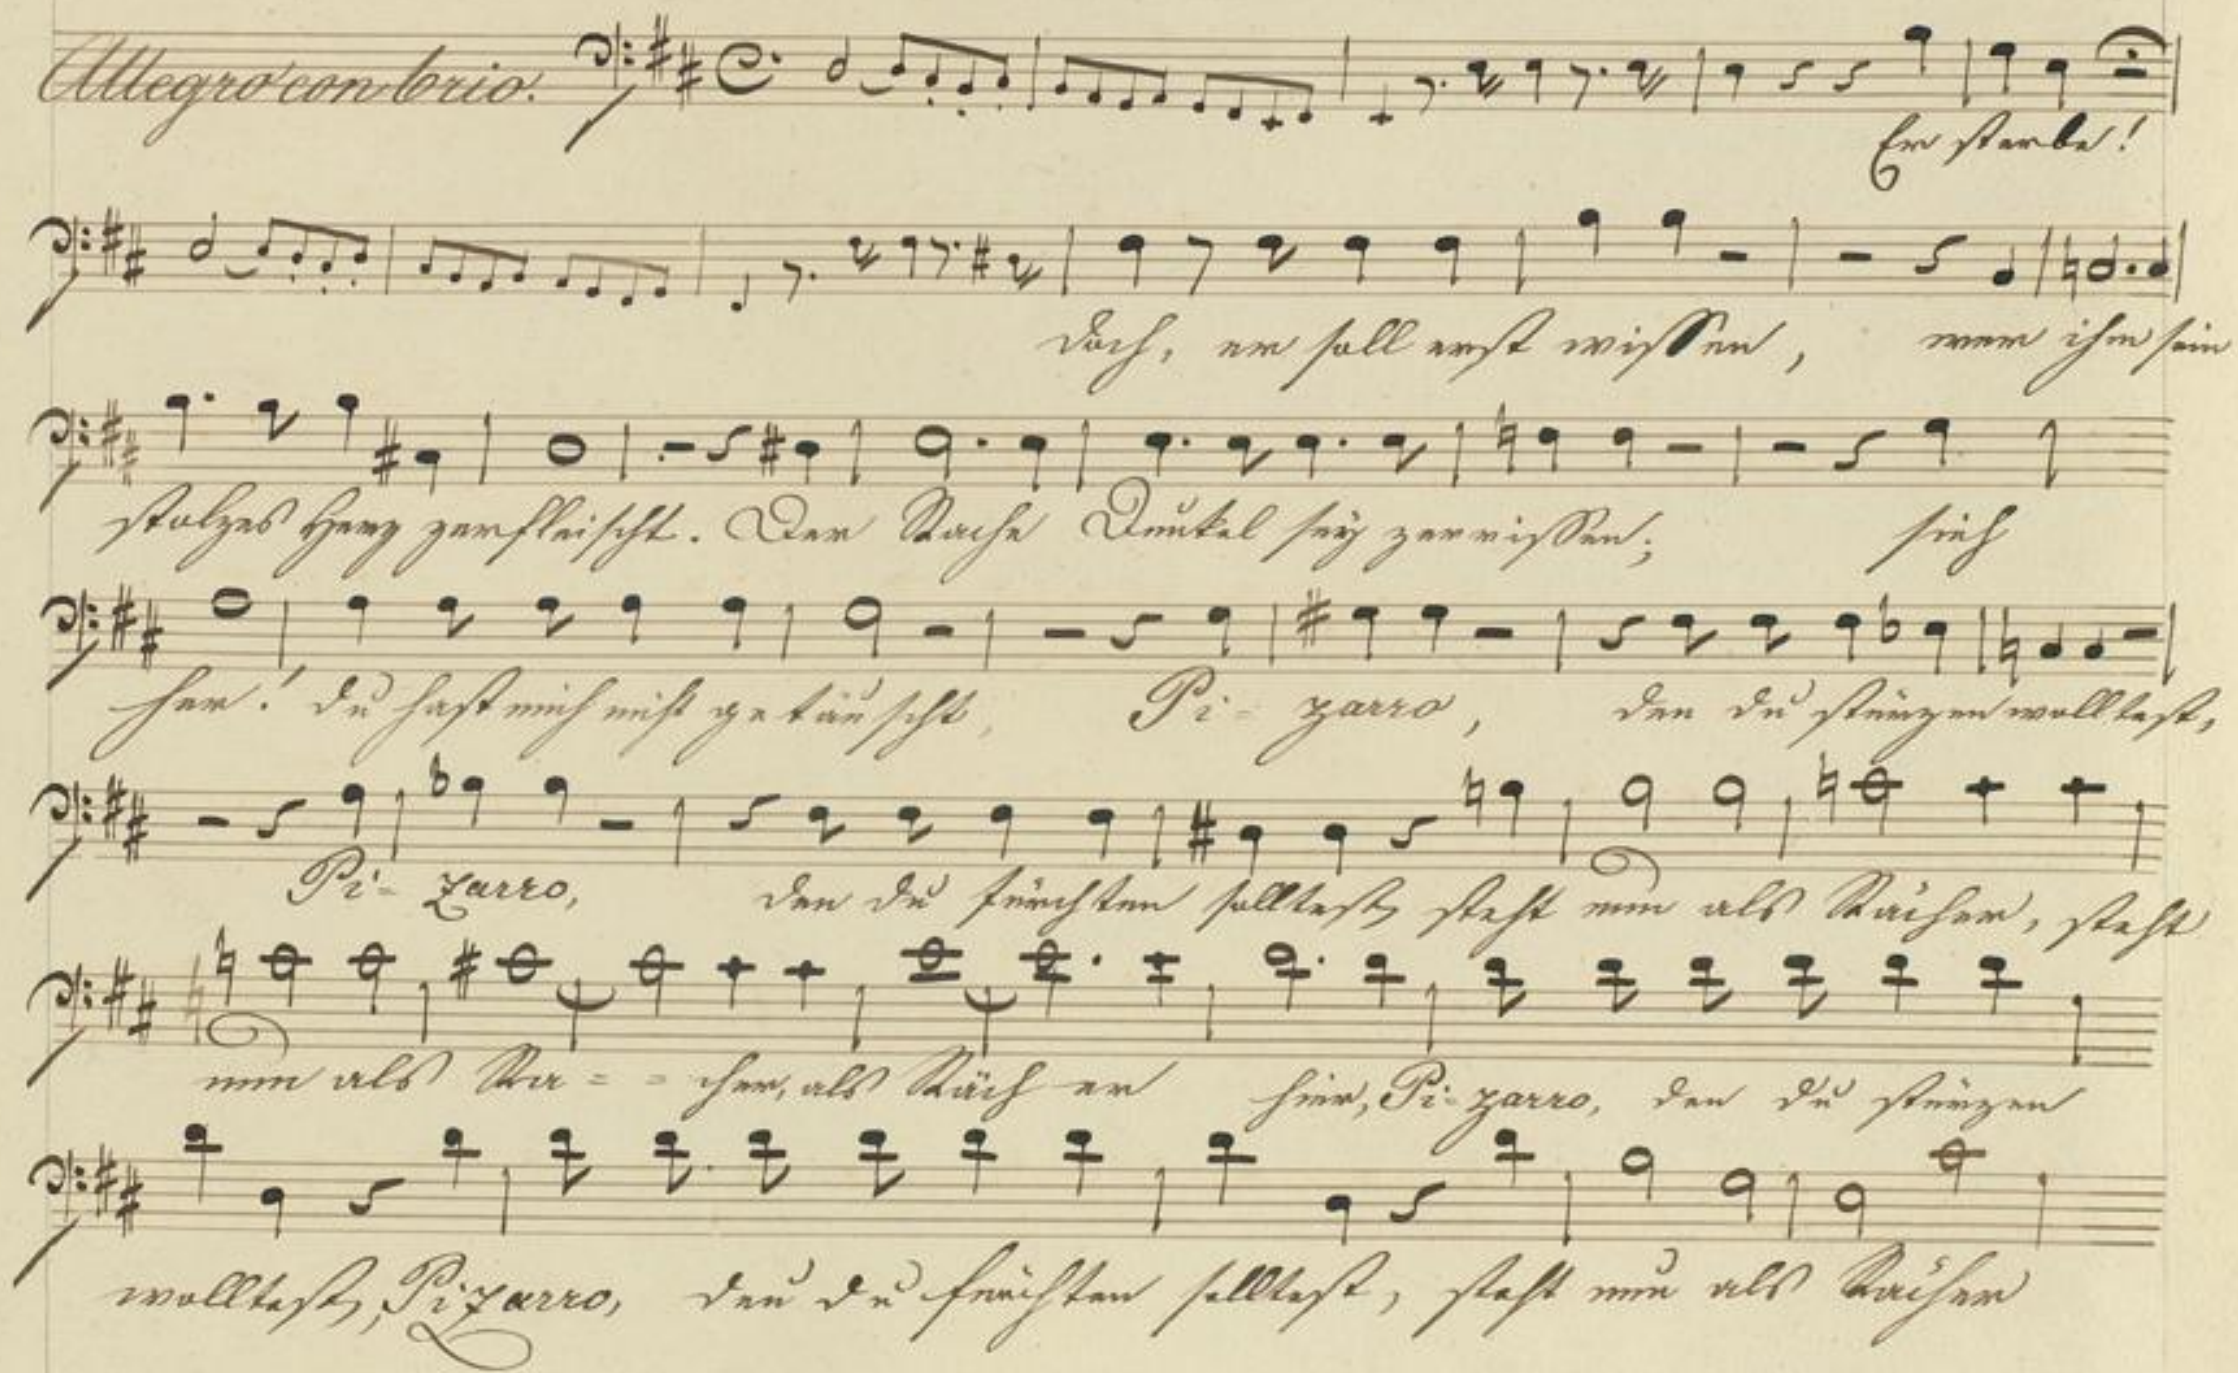 Allegro con brio.
Er sterbe!
Doch, er soll erst wissen, wer ihm sein
stolzes Herz zerfleischt. Der Rache Dunkel sey zerrissen;, sieh
her! du hast mich nicht getäuscht, Pi- zarro, den du stürzen wolltest,
Pi- zarro, den du fürchten solltest, steht nun als Rächer, steht
nun als Rä = = cher, als Räch er hier, Pi- zarro, den du stürzen
wolltest, Pizarro, den du fürchten solltest, steht nun als Rächer